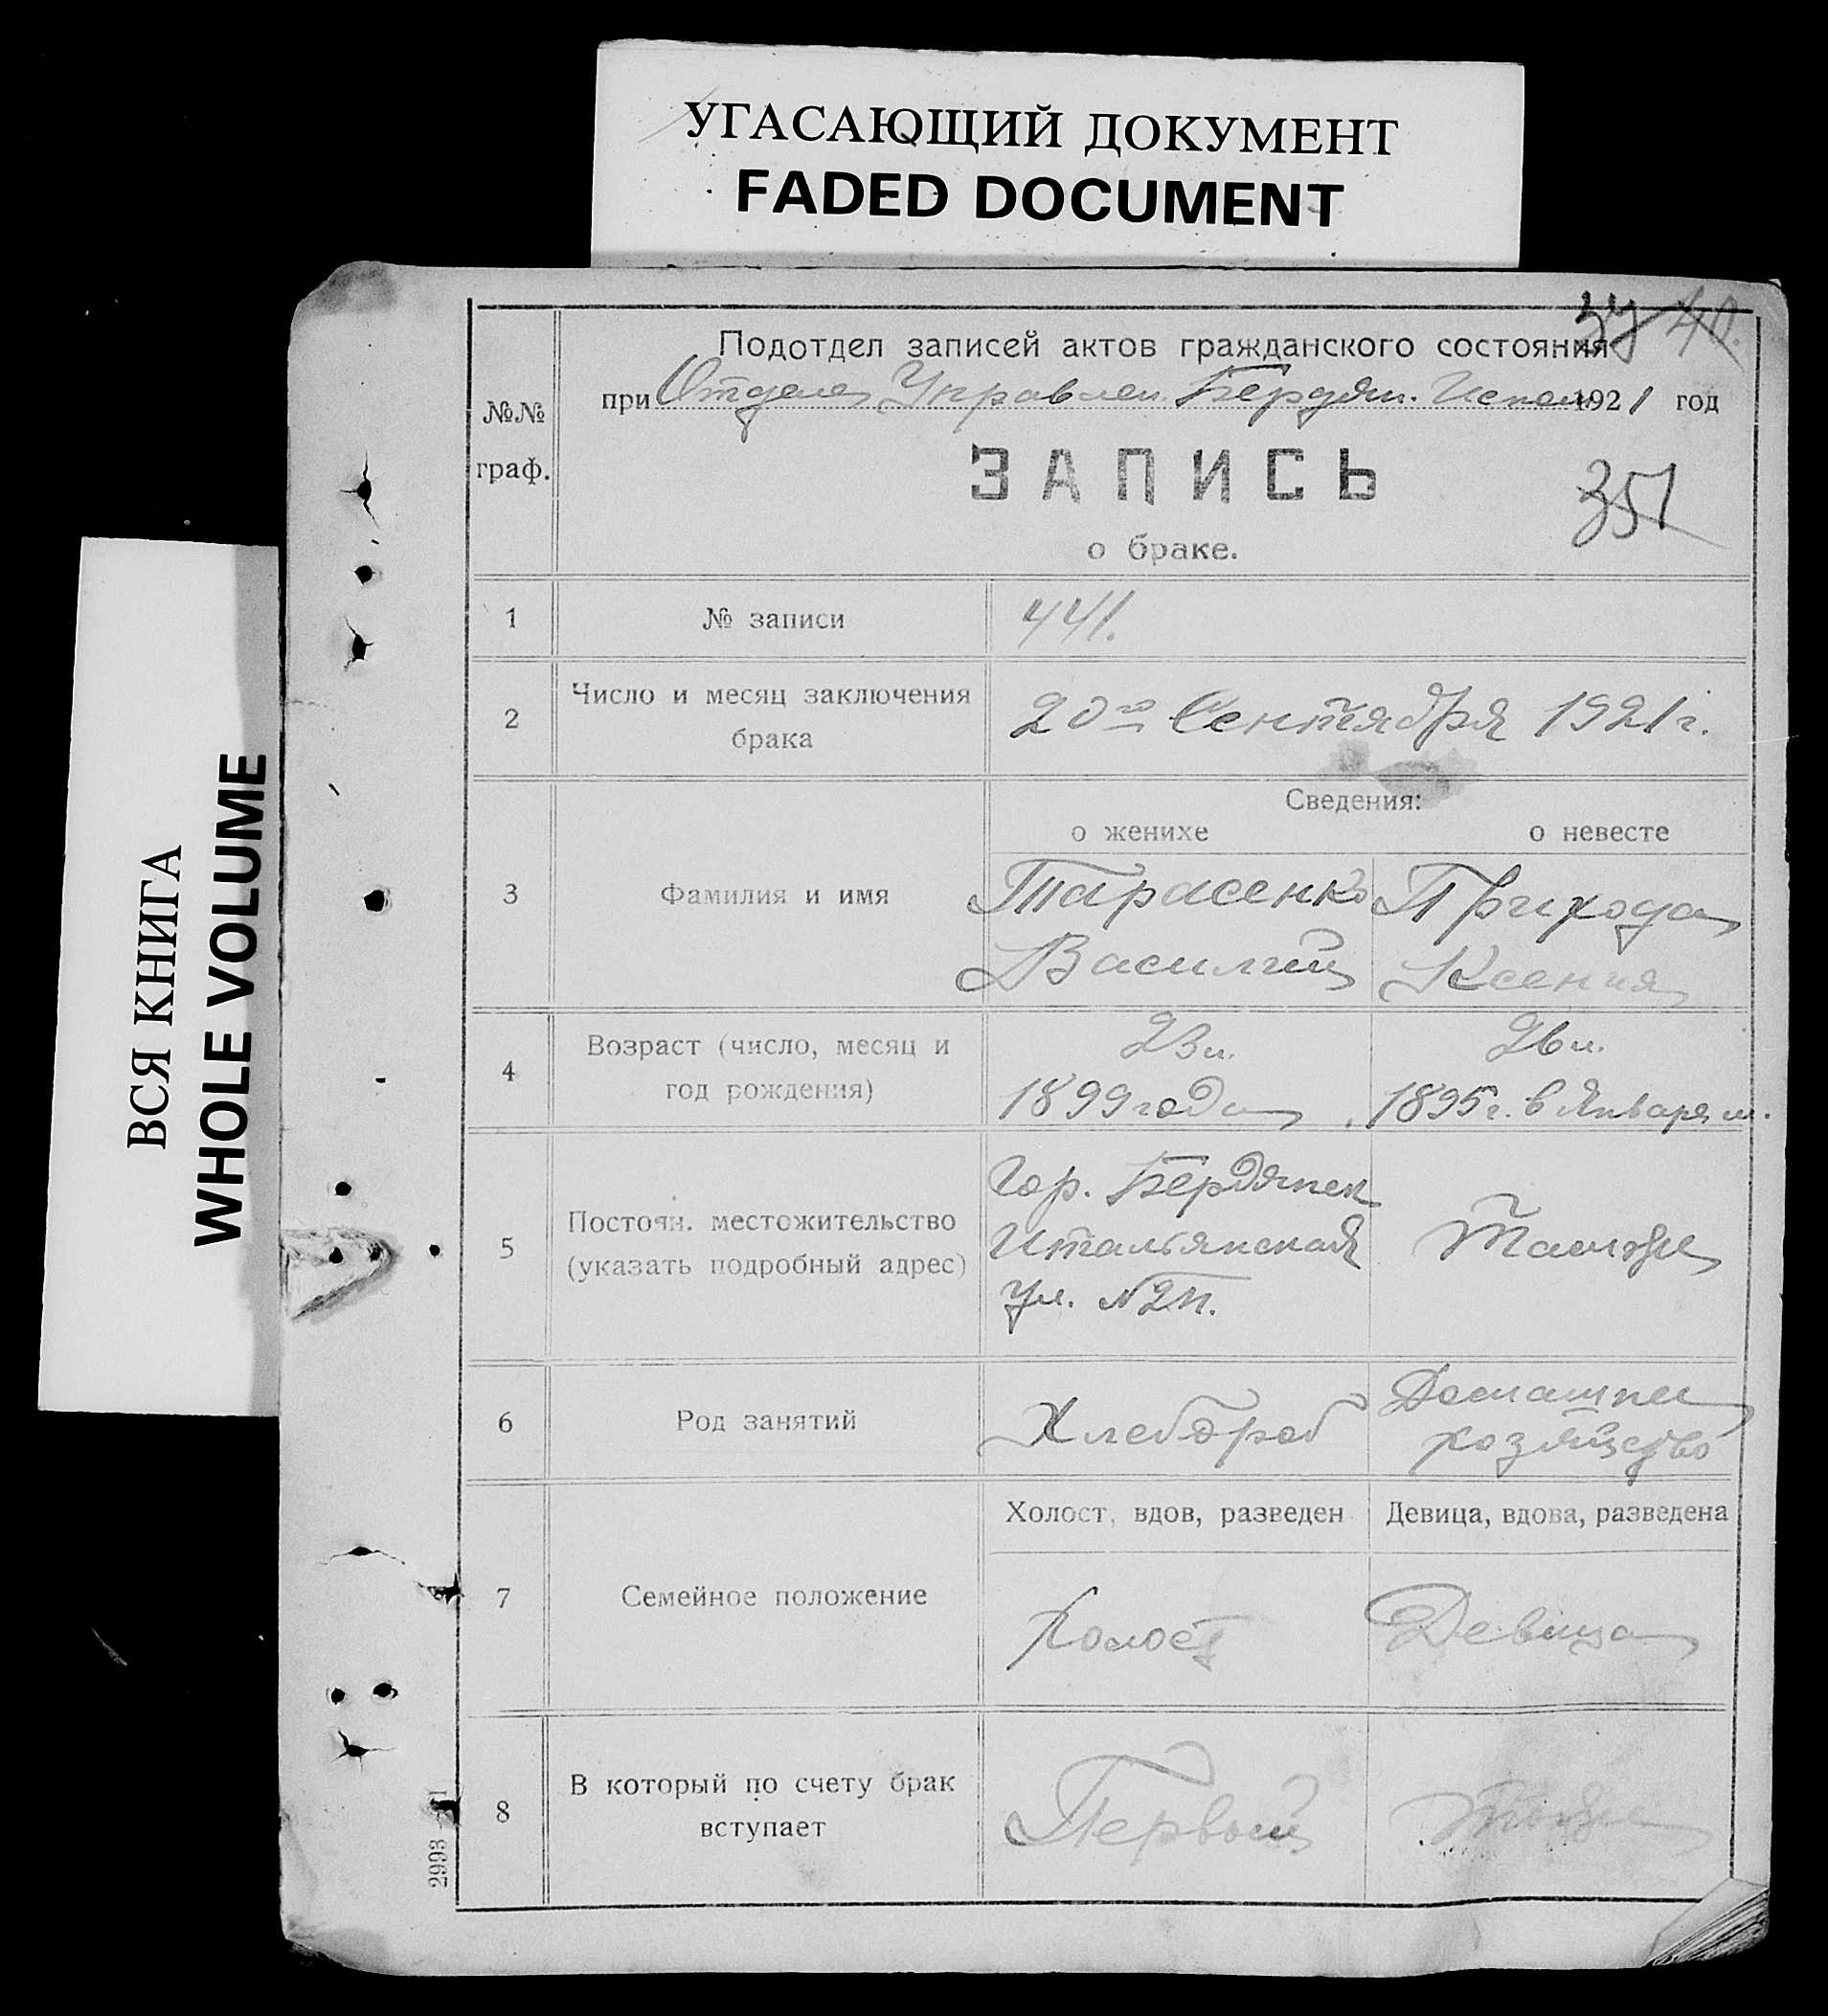 УГАСАЮЩИЙ ДОКУМЕНТ
FADED DOCUMENT
ВСЯ КНИГА
WHOLE VOLUME
Подотдел записей актов гражданского состояния
при Отделе Управлен. Бердян. Исполк. 1921 год
№№
граф.
ЗАПИСЬ
351
о браке.
1 № записи 441.
2 Число и месяц заключения
брака
20го Сентября 1921 г.
Сведения:
о женихе о невесте
3 Фамилия и имя
Тарасенко Прихода
Василий Ксения
4 Возраст (число, месяц и
год рождения)
23 л. 26 л.
1899 года 1895 г. в Январе м.
5 Постоян. местожительство
(указать подробный адрес)
Гор. Бердянск
Итальянская Там же
ул.
6 Род занятий
Хлебороб Домашнее
хозяйство
Холост, вдов, разведен Девица, вдова, разведена
7 Семейное положение
Холост Девица
8 В который по счету брак
вступает
Первый
2993